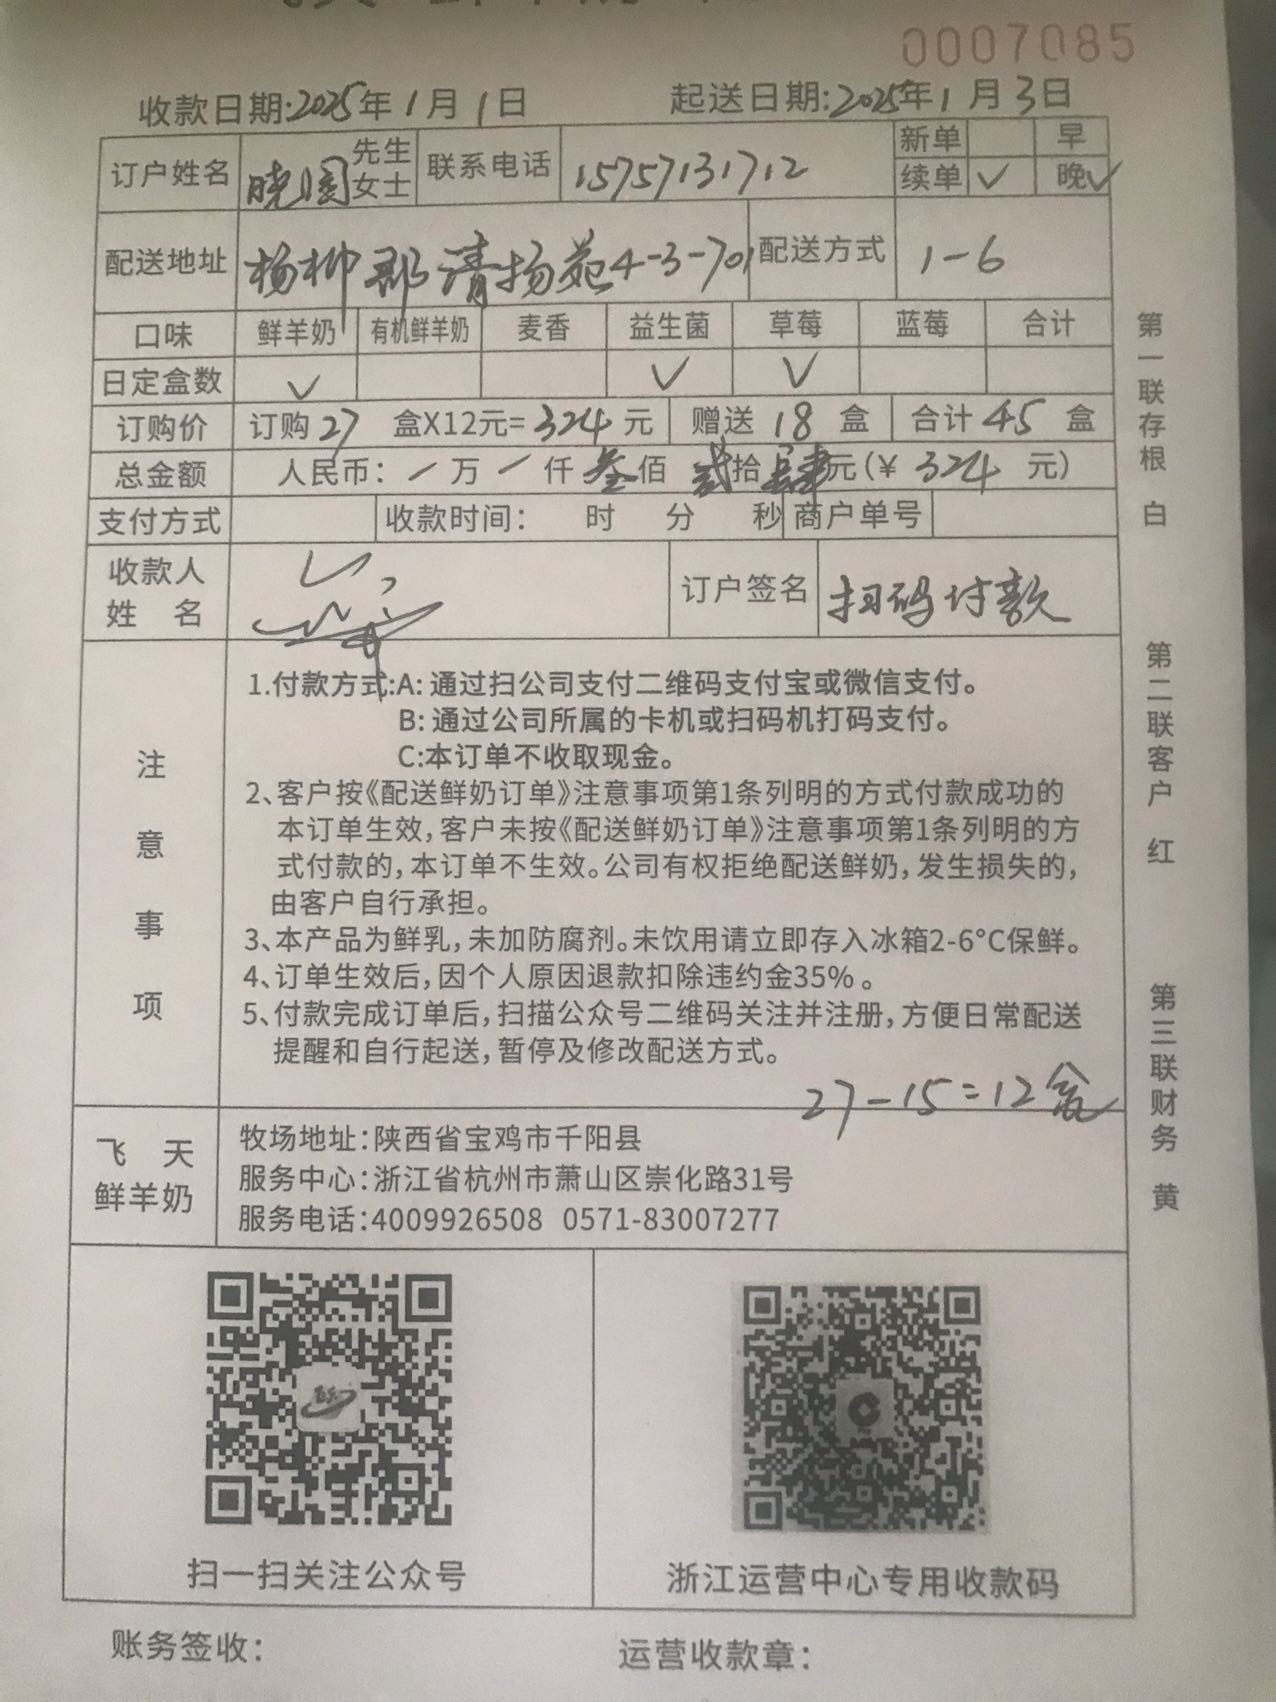 0007085
收款日期:2025年1月1日 起送日期:2025年1月3日
订户姓名 晓园 先生 女士 联系电话 15757131712 新单 早
续单 ✓ 晚 ✓
配送地址 杨柳郡清扬苑4-3-701 配送方式 1-6
口味 鲜羊奶 有机鲜羊奶 麦香 益生菌 草莓 蓝莓 合计
日定盒数 ✓ ✓ ✓
订购价 订购27盒X12元=324元 赠送18盒 合计45盒
总金额 人民币:/万/仟叁佰贰拾肆元(¥324元)
支付方式 收款时间: 时 分 秒 商户单号
收款人
姓 名
订户签名 扫码付款
注意事项
1.付款方式:A:通过扫公司支付二维码支付宝或微信支付。
B:通过公司所属的卡机或扫码机打码支付。
C:本订单不收取现金。
2、客户按《配送鲜奶订单》注意事项第1条列明的方式付款成功的
本订单生效,客户未按《配送鲜奶订单》注意事项第1条列明的方
式付款的,本订单不生效。公司有权拒绝配送鲜奶,发生损失的,
由客户自行承担。
3、本产品为鲜乳,未加防腐剂。未饮用请立即存入冰箱2-6°C保鲜。
4、订单生效后,因个人原因退款扣除违约金35%。
5、付款完成订单后,扫描公众号二维码关注并注册,方便日常配送
提醒和自行起送,暂停及修改配送方式。
27-15=12盒
飞 天
鲜羊奶
牧场地址:陕西省宝鸡市千阳县
服务中心:浙江省杭州市萧山区崇化路31号
服务电话:4009926508 0571-83007277
扫一扫关注公众号 浙江运营中心专用收款码
账务签收: 运营收款章:
第一联存根 白
第二联客户 红
第三联财务 黄